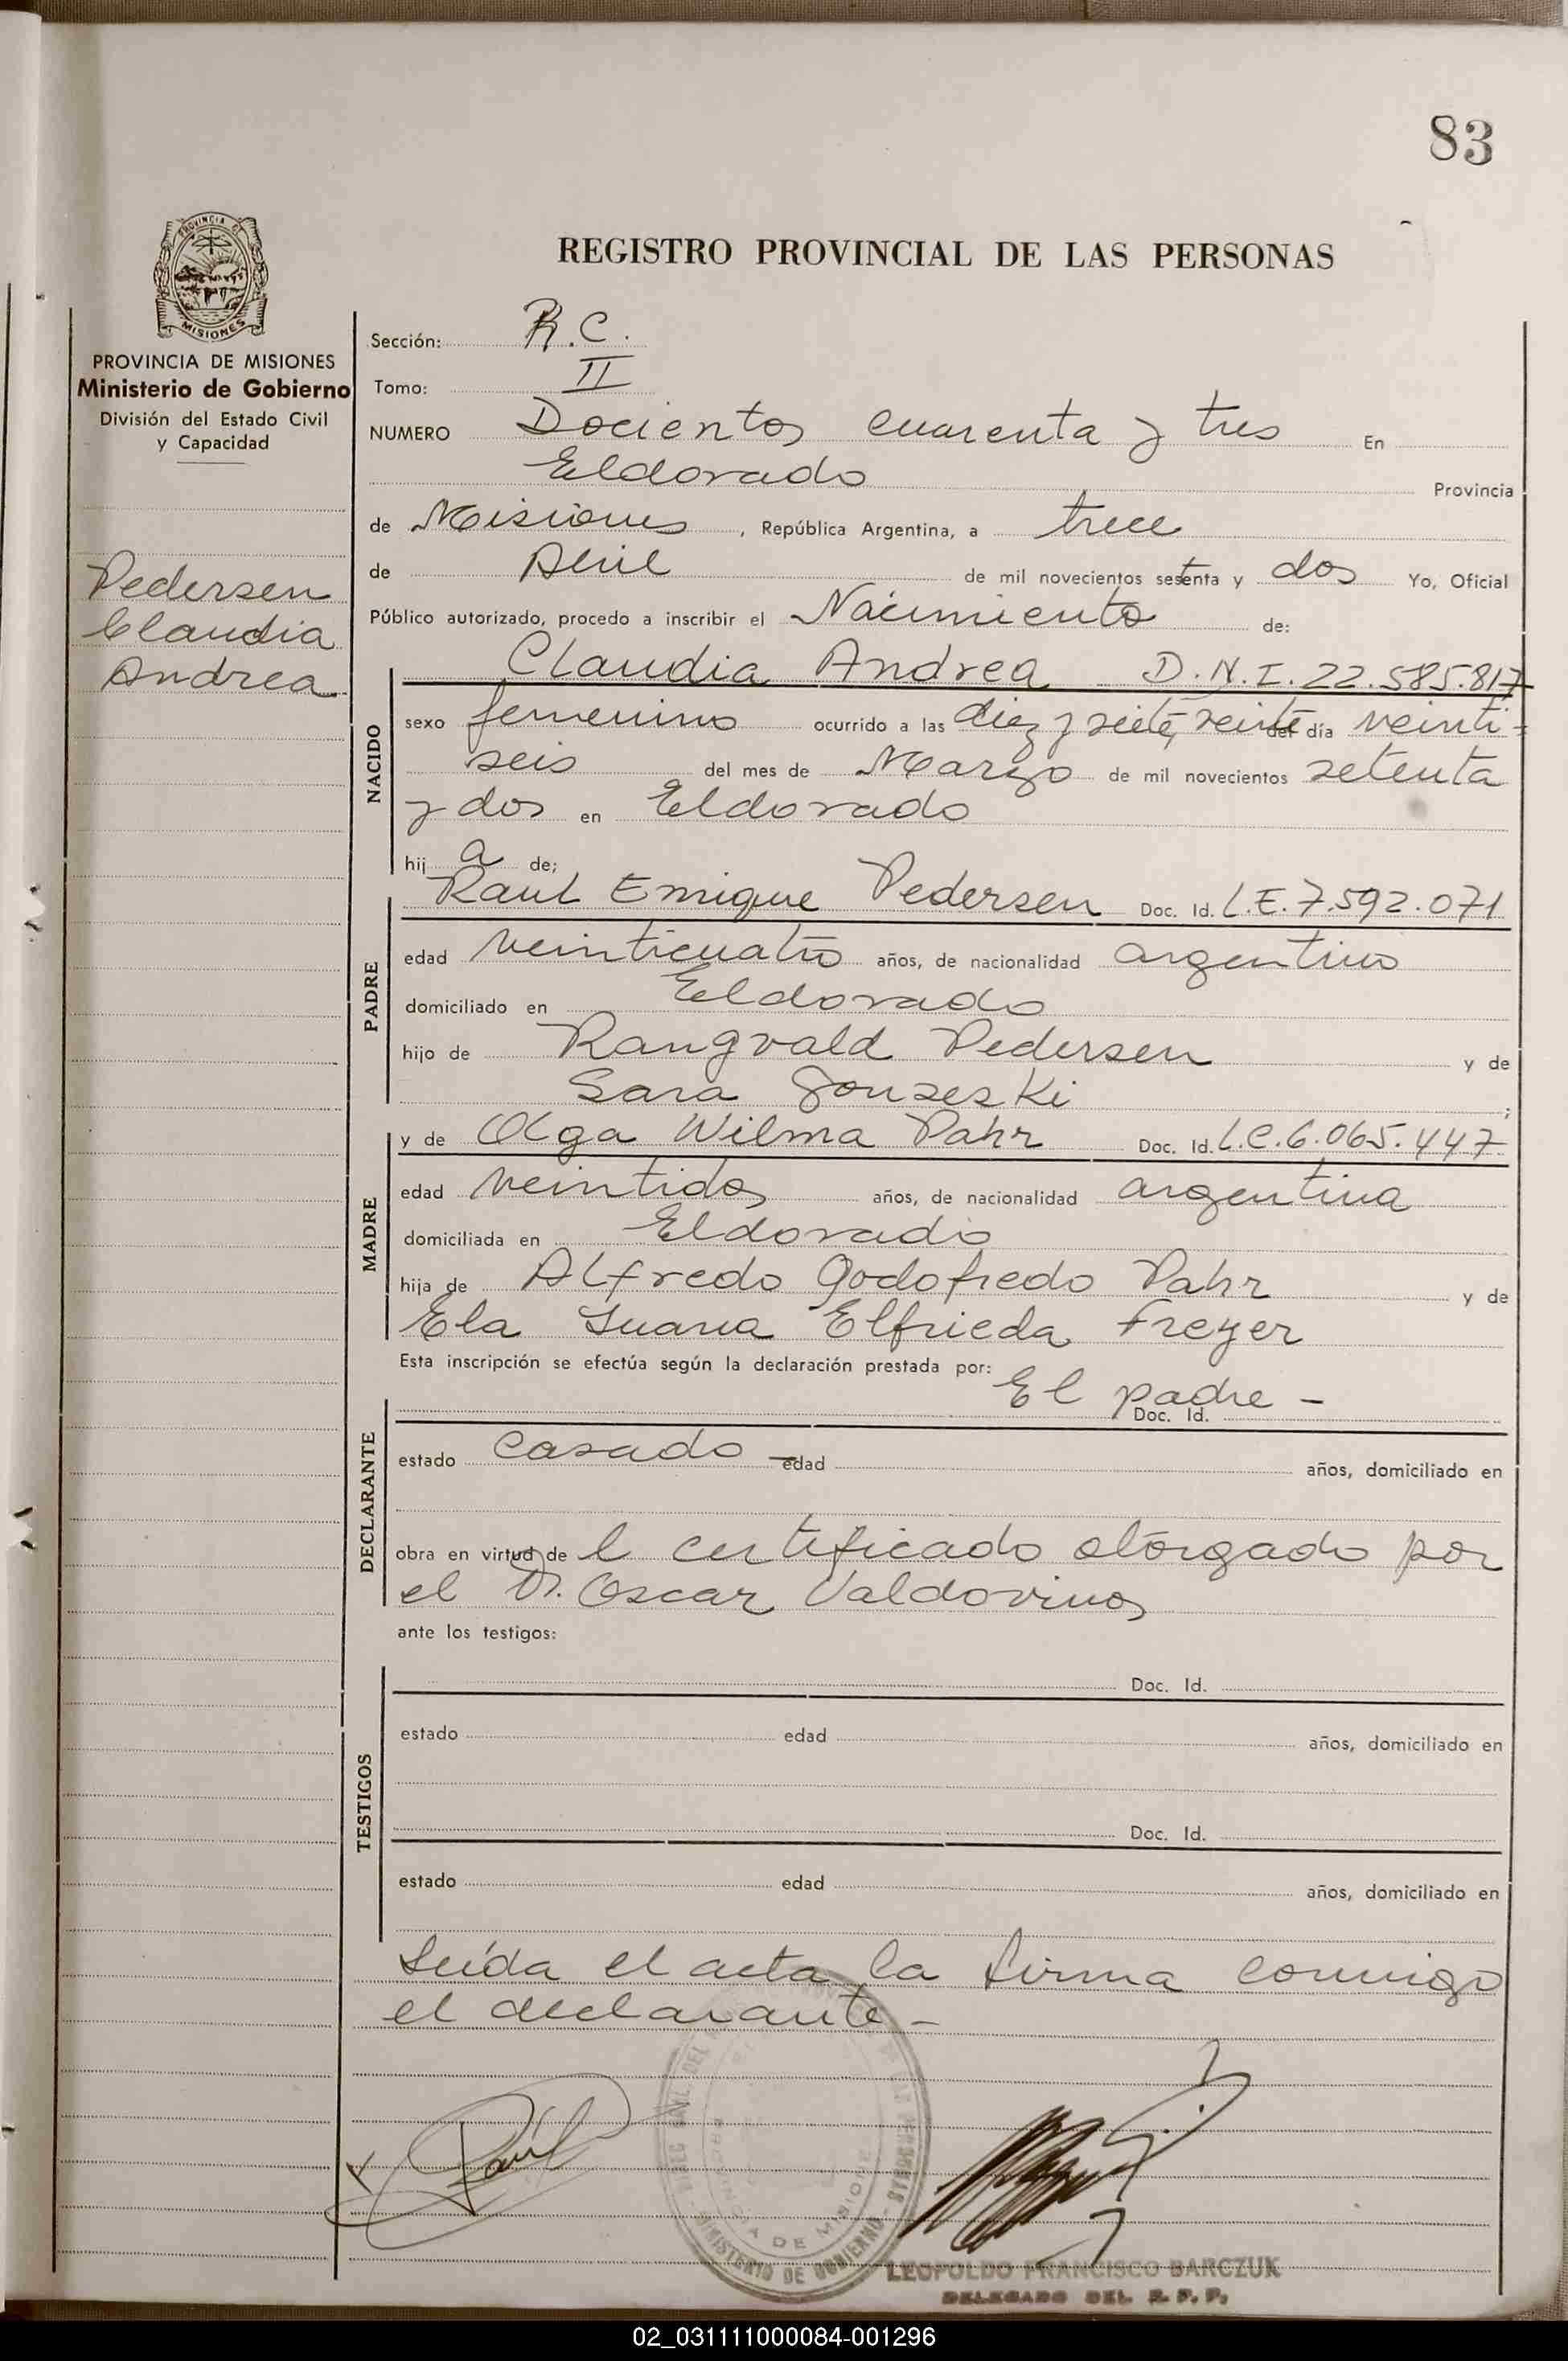 83
REGISTRO PROVINCIAL DE LAS PERSONAS
PROVINCIA DE MISIONES
Ministerio de Gobierno
División del Estado Civil
y Capacidad
Pedersen
Claudia
Andrea
Sección: R.C.
Tomo: II
NUMERO Docientos cuarenta y tres En
Eldorado Provincia
de Misiones, República Argentina, a trece
de Abril de mil novecientos setenta y dos Yo, Oficial
Público autorizado, procedo a inscribir el Nacimiento de:
Claudia Andrea D.N.I. 22.585.817
NACIDO
sexo femenino ocurrido a las diez y siete, veinte del día veinti-
seis del mes de Marzo de mil novecientos setenta
y dos en Eldorado
hij a de;
Raul Enrique Pedersen Doc. Id. L.E.7.592.071
PADRE
edad veinticuatro años, de nacionalidad argentino
domiciliado en Eldorado
hijo de Rangvald Pedersen y de
Sara Gonseski;
y de Olga Wilma Pahr Doc. Id. L.C.6.065.447
MADRE
edad veintidos años, de nacionalidad argentina
domiciliada en Eldorado
hija de Alfredo Godofredo Pahr y de
Ela Juana Elfrieda Freyer
Esta inscripción se efectúa según la declaración prestada por: El padre -
Doc. Id.
DECLARANTE
estado casado - edad años, domiciliado en
obra en virtud de l certificado otorgado por
el Dr. Oscar Valdovinos
ante los testigos:
Doc. Id.
TESTIGOS
estado edad años, domiciliado en
Doc. Id.
estado edad años, domiciliado en
Leída el acta la firma conmigo
el declarante -
Raúl
PROVINCIA DE MISIONES
MINISTERIO DE GOBIERNO
LEOPOLDO FRANCISCO BARCZUK
DELEGADO DEL R. P. P.
02_031111000084-001296